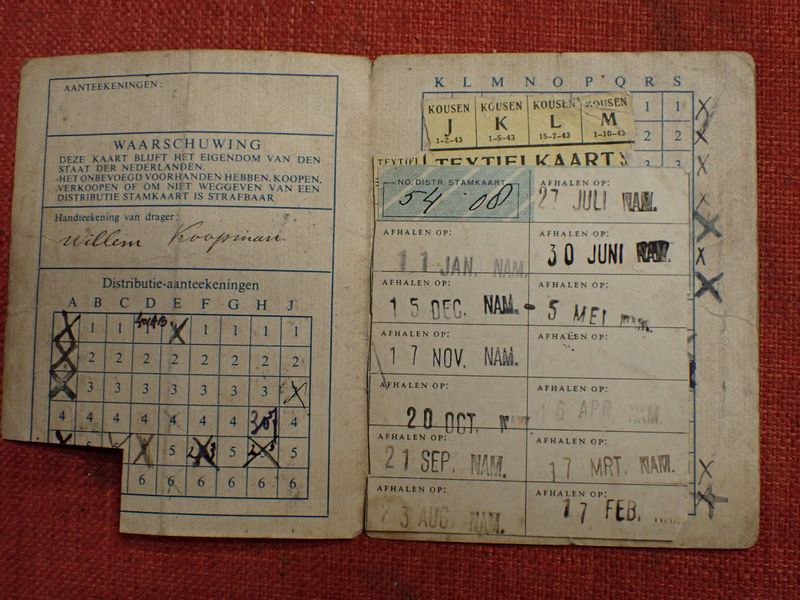 AANTEEKENINGEN:
WAARSCHUWING
DEZE KAART BLIJFT HET EIGENDOM VAN DEN
STAAT DER NEDERLANDEN.
HET ONBEVOEGD VOORHANDEN HEBBEN, KOOPEN,
VERKOOPEN OF OM NIET WEGGEVEN VAN EEN
DISTRIBUTIE STAMKAART IS STRAFBAAR
Handteekening van drager:
Willem Koopman
Distributie-aanteekeningen
A B C D E F G H J
1 1 1 1 1 1
2 2 2 2 2 2 2 2
3 3 3 3 3 3 3
4 4 4 4 4 4 4 4
5 5 5
6 6 6 6 6 6
K L M N O P Q R S
KOUSEN KOUSEN KOUSEN KOUSEN
J K L M
1-2-43 1-5-43 15-7-43 1-10-43
1 1
2 2
3 3
TEXTIEL
TEXTIELKAART
NO. DISTR. STAMKAART
54 08
AFHALEN OP:
27 JULI NAM.
AFHALEN OP:
11 JAN. NAM.
AFHALEN OP:
30 JUNI NAM.
AFHALEN OP:
15 DEC. NAM.
AFHALEN OP:
- 5 MEI
AFHALEN OP:
17 NOV. NAM.
AFHALEN OP:
AFHALEN OP:
20 OCT.
AFHALEN OP:
16 APR. NAM.
AFHALEN OP:
21 SEP. NAM.
AFHALEN OP:
17 MRT. NAM.
AFHALEN OP:
23 AUG. NAM.
AFHALEN OP:
17 FEB. NAM.